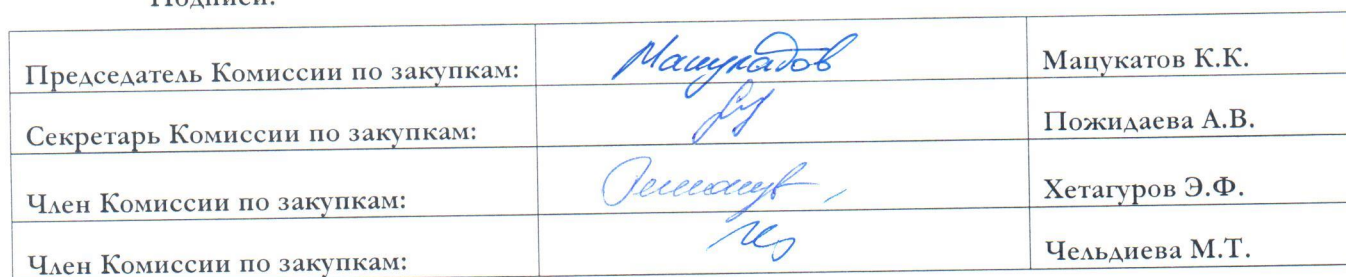 Подписи:
Председатель Комиссии по закупкам: Мацукатов Мацукатов К.К.
Секретарь Комиссии по закупкам: Пожидаева А.В.
Член Комиссии по закупкам: Хетагуров Э.Ф.
Член Комиссии по закупкам: Чельдиева М.Т.